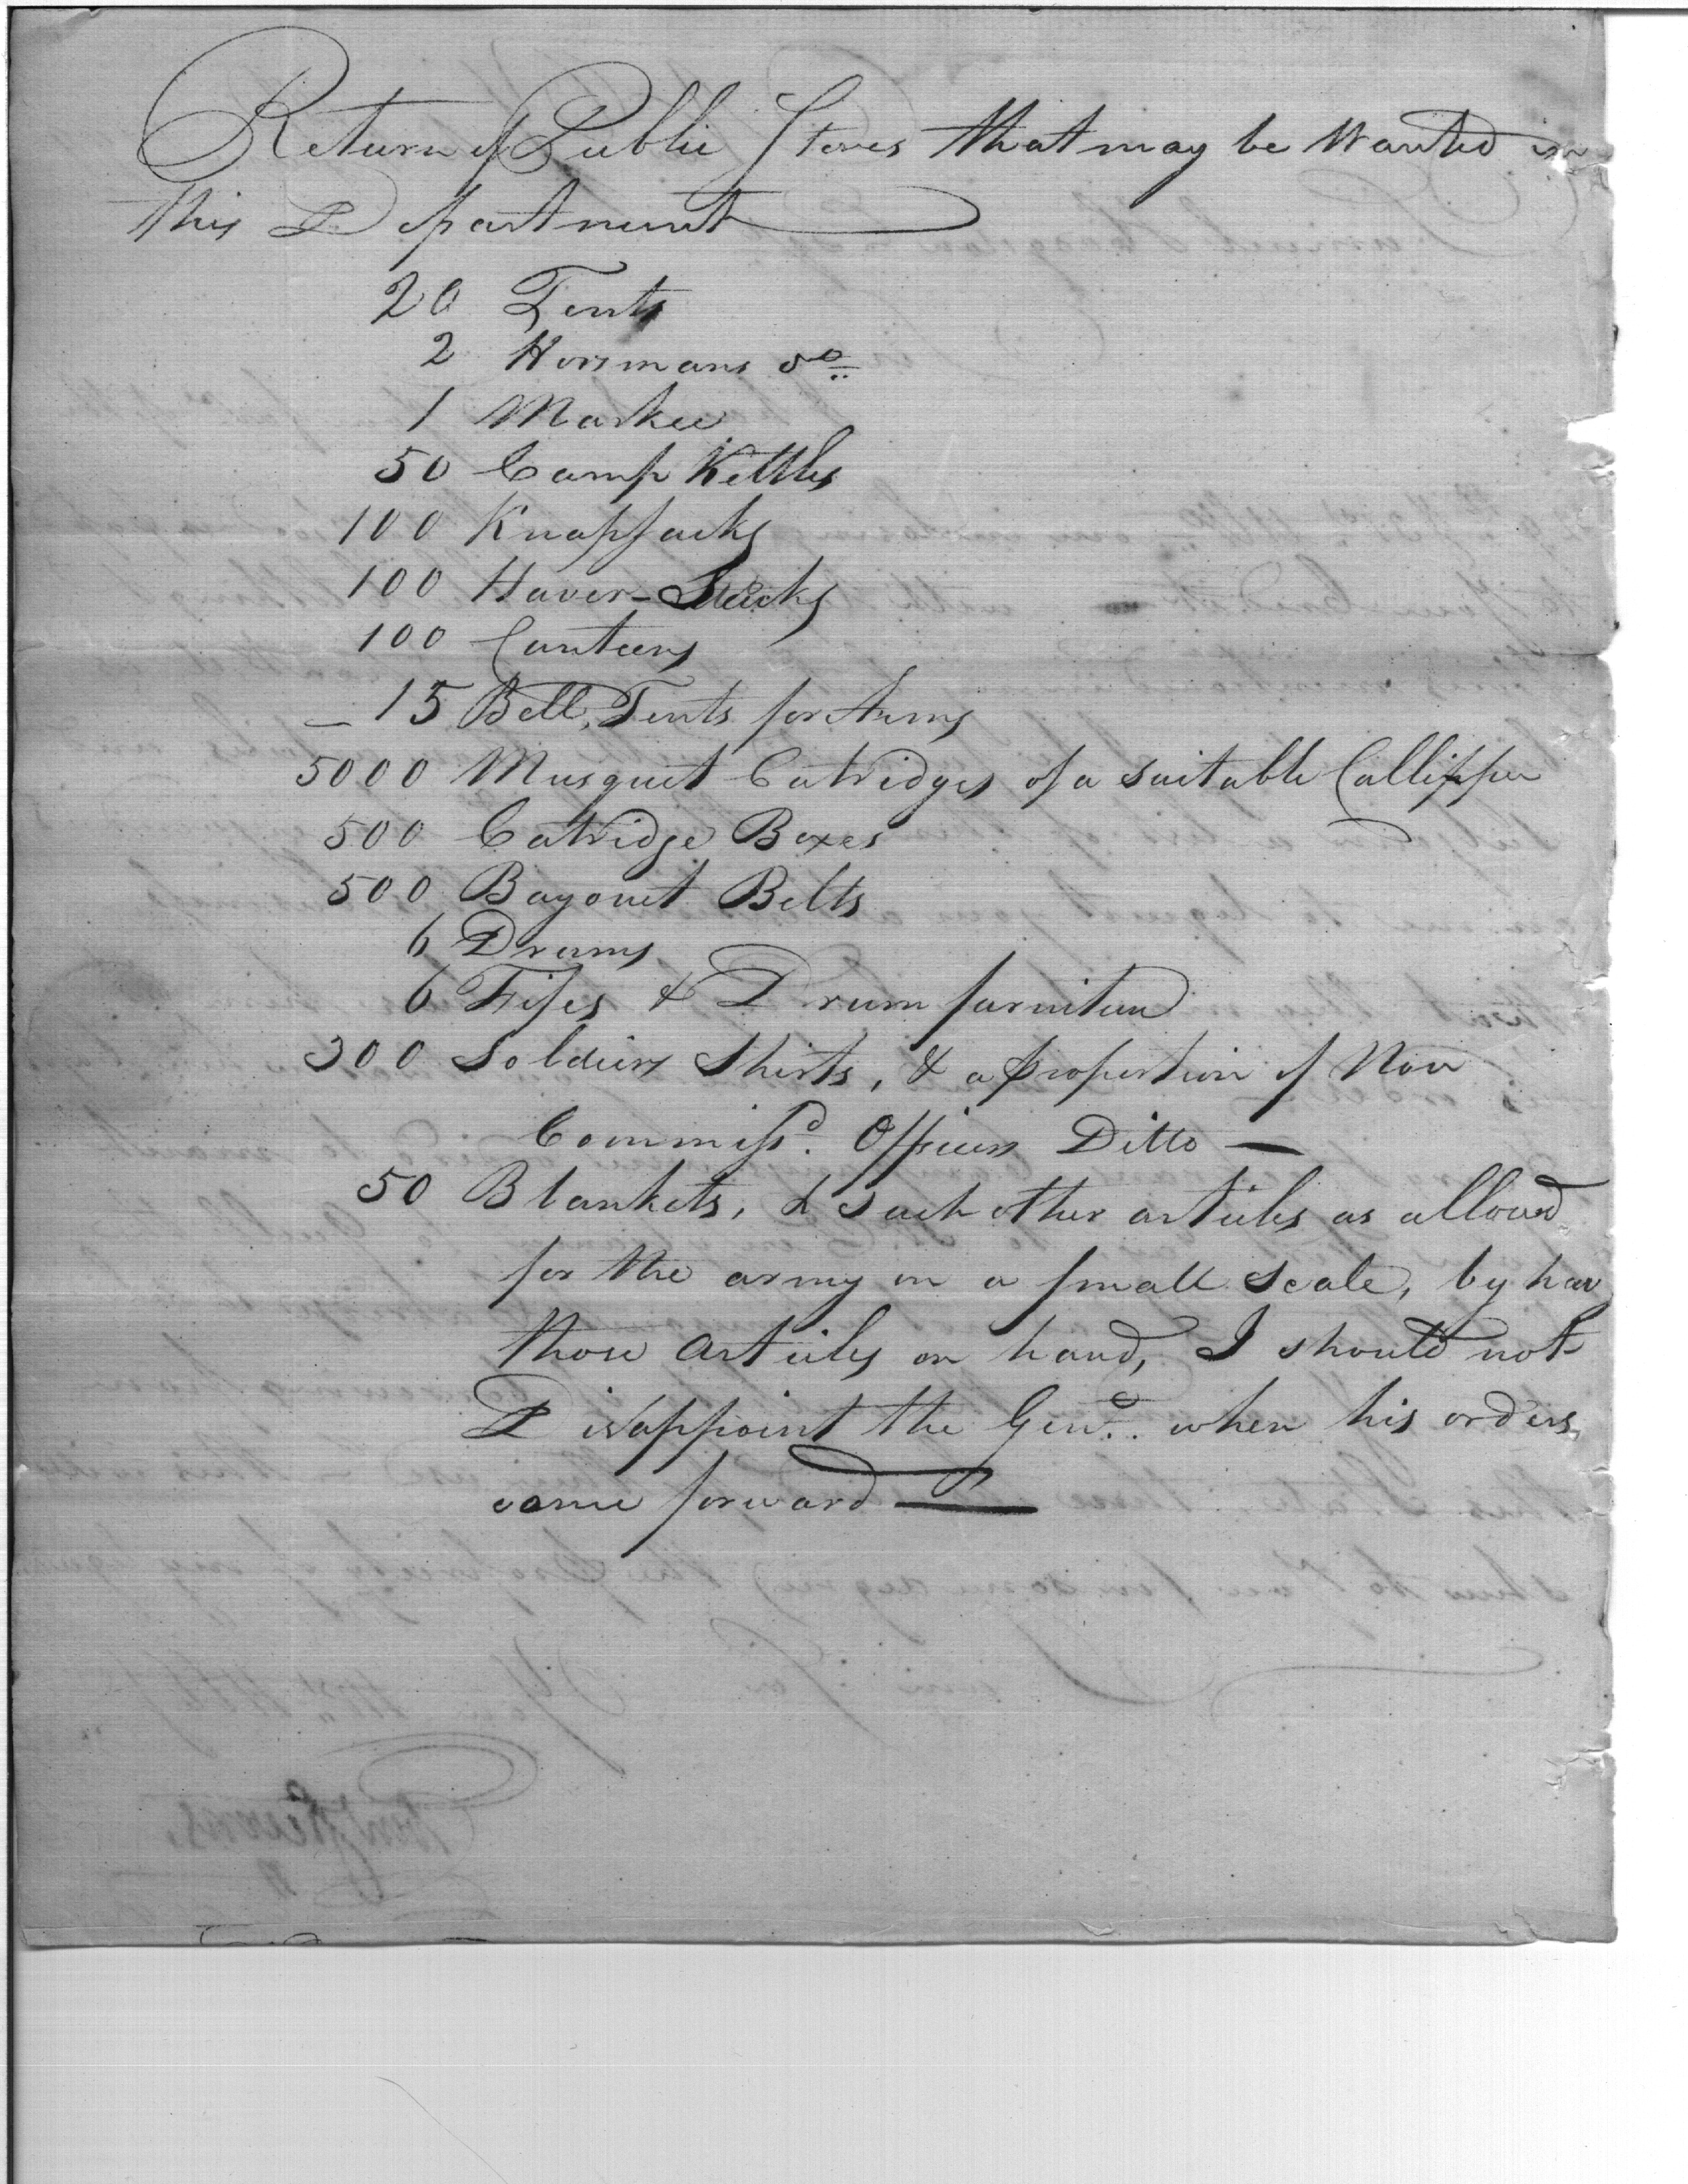 Return of Public Stores that may be Wanted in
this Department
20 Tents
2 Horsmans do
1 Markee
50 Camp Kettles
100 Knapsacks
100 Haver-Sacks
100 Canteens
15 Bell Tents for Arms
5000 Musquet Catridges of a suitable Callipper
500 Catridge Boxes
500 Bayonet Belts
6 Drums
6 Fifes & Drum furniture
300 Soldiers Shirts, & a proportion of Non
Commissd. Officers Ditto —
50 Blankets, & such other articles as allowed
for the army on a small scale, by hav
those articles on hand, I should not
Disappoint the Genl. when his orders
come forward —